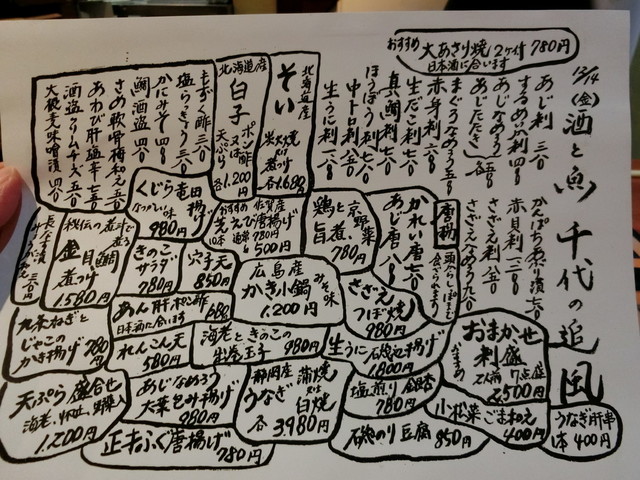 12/14
(金)
酒と魚 千代の追風
おすすめ 大あさり焼 2ケ付 780円
日本酒に合います
あじ刺
するめいか刺
あじなめろう
あじたたき
まぐろなめろう
赤身刺
生だこ刺
真鯛刺
ほうぼう刺
中トロ刺
生うに刺
かんぱち煮り漬
赤貝刺
さざえ刺
さざえなめろう
唐揚
頭からしっぽまで
食べられます
かれい唐
あじ唐
北海道産
そい
炭火焼
又は
煮つけ
各1,680円
北海道産
白子
ポン酢
又は
天ぷら
各1,200円
もずく酢
塩らっきょう
かにみそ
鯛酒盗
さめ軟骨梅和え
あわび肝塩辛
酒盗クリームチーズ
大根麦味噌漬
くじら竜田揚げ
なつかしい味
980円
おすすめ
佐賀県産
芝えび唐揚げ
500円
鶏と京野菜
旨煮
780円
秘伝の煮汁で煮る
金目鯛
煮つけ
1,580円
きのこ
サラダ
780円
穴子天
850円
広島産
かき小鍋 みそ味
1,200円
さざえ
つぼ焼
980円
九条ねぎと
じゃこの
かき揚げ
780円
あん肝ポン酢
日本酒に合います
680円
れんこん天
580円
海老ときのこの
980円
生うに磯辺揚げ
1,800円
おまかせ
刺盛
2人前 7点盛
2,500円
天ぷら盛合せ
海老、キス、野菜入
1,200円
あじなめろう
大葉包み揚げ
980円
静岡産
うなぎ
蒲焼
又は
白焼
各3,980円
塩煎り銀杏
780円
小松菜ごまわえ
400円
うなぎ肝串
1本 400円
正才ふぐ唐揚げ
780円
磯のり豆腐 850円